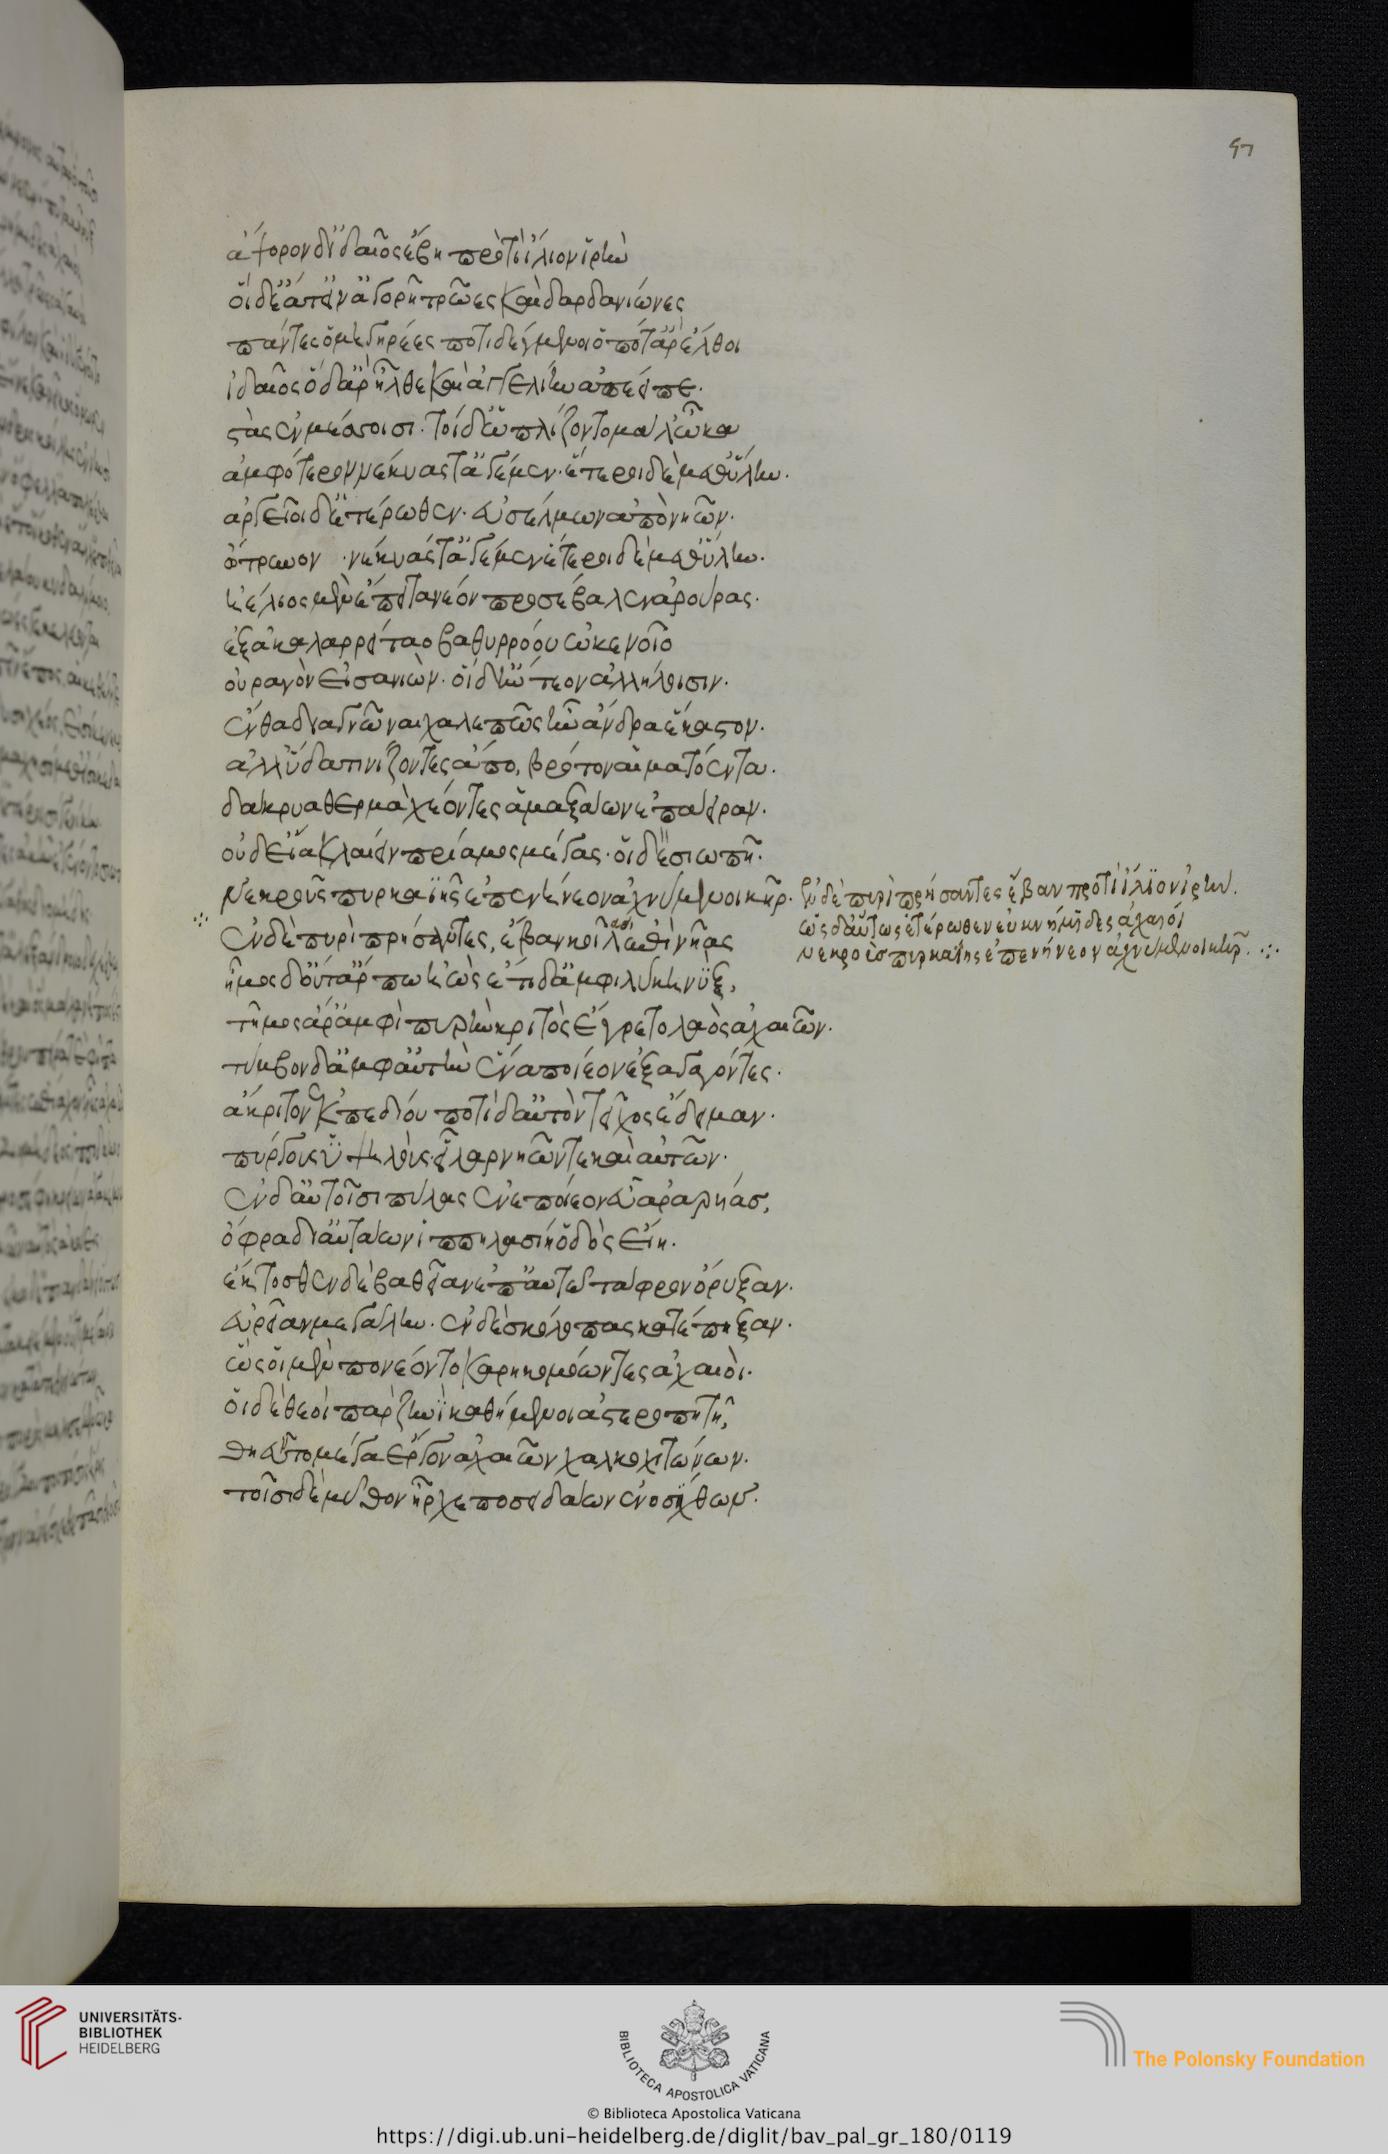 97
ἄψορον δ' ἰδαῖος ἔβη προτὶ ἴλιον ἱρὴν
οἱ δ' ἕατ' εἰν ἀγορῆ τρῶες καὶ δαρδανίωνες
πάντες ὁμηγερέες ποτιδέγμενοι ὁππότ' ἂρ ἔλθοι
ἰδαῖος ὁ δ' ἂρ ἦλθε καὶ ἀγγελίην ἀπέειπε.
στὰς ἐν μέσοισι. τοὶ δ' ὡπλίζοντο μάλ' ὦκα
ἀμφότερον νέκυάς τ' ἀγέμεν. ἕτεροι δὲ μεθ' ὕλην.
ἀργεῖοι δ' ἑτέρωθεν. ἐυσέλμων ἀπὸ νηῶν.
ὄτρυνον νέκυάς τ' ἀγέμεν ἕτεροι δὲ μεθ' ὕλην.
ἠέλιος μὲν ἔπειτα νέον προσέβαλεν ἀρούρας.
ἐξ ἀκαλαρρείταο βαθυρρόου ὠκεανοῖο
οὐρανὸν εἰσανιών. οἱ δ' ἤντεον ἀλλήλοισιν.
ἔνθα διαγνῶναι χαλεπῶς ἦν ἄνδρα ἕκαστον.
ἀλλ' ὕδατι νίζοντες ἄπο, βρότον αἱματόεντα.
δάκρυα θερμὰ χέοντες ἁμαξάων ἐπάειραν.
οὐδ' εἴα κλαίειν πρίαμος μέγας. οἱ δὲ σιωπῆ.
νεκροὺς πυρκαϊῆς ἐπενήνεον ἀχνύμενοι κῆρ.
ἐν δὲ πυρὶ πρήσαντες, ἔβαν κοίλας ἐπὶ νῆας
ἦμος δ' οὔτ' ἄρ πω ἠὼς ἔτι δ' ἀμφιλύκη νύξ,
τῆμος ἄρ' ἀμφὶ πυρὴν κριτὸς ἔγρετο λαὸς ἀχαιῶν.
τύμβον δ' ἀμφ' αὐτὴν ἕνα ποίεον ἐξαγαγόντες.
ἄκριτον ἐκ πεδίου ποτὶ δ' αὐτὸν τεῖχος ἔδειμαν.
πύργους ὑψηλούς. εἶλαρ νηῶν τε καὶ αὐτῶν.
ἐν δ' αὐτοῖσι πύλας ἐνεποίεον εὖ ἀραρυίας,
ὄφρα δι' αὐτάων ἱππηλασίη ὁδὸς εἴη.
ἔκτοσθεν δὲ βαθεῖαν ἐπ' αὐτῷ τάφρον ὄρυξαν.
εὐρεῖαν μεγάλην. ἐν δὲ σκόλοπας κατέπηξαν.
ὣς οἱ μὲν πονέοντο καρηκομόωντες ἀχαιοὶ.
οἱ δὲ θεοὶ πὰρ ζηνὶ καθήμενοι ἀστεροπητῆ,
θηεῦντο μέγα ἔργον ἀχαιῶν χαλκοχιτώνων.
τοῖσι δὲ μύθων ἦρχε ποσειδάων ἐνοσίχθων.
ἐν δὲ πυρὶ πρήσαντες ἔβαν προτὶ ἴλϊον ἱρήν.
ὣς δ' αὔτως ἑτέρωθεν ἐυκνήμιδες ἀχαιοί
νεκροὺς πυρκαϊῆς ἐπενήνεον ἀχνύμενοι κῆρ.
UNIVERSITÄTS-
BIBLIOTHEK
HEIDELBERG
BIBLIOTECA APOSTOLICA VATICANA
The Polonsky Foundation
© Biblioteca Apostolica Vaticana
https://digi.ub.uni-heidelberg.de/diglit/bav_pal_gr_180/0119